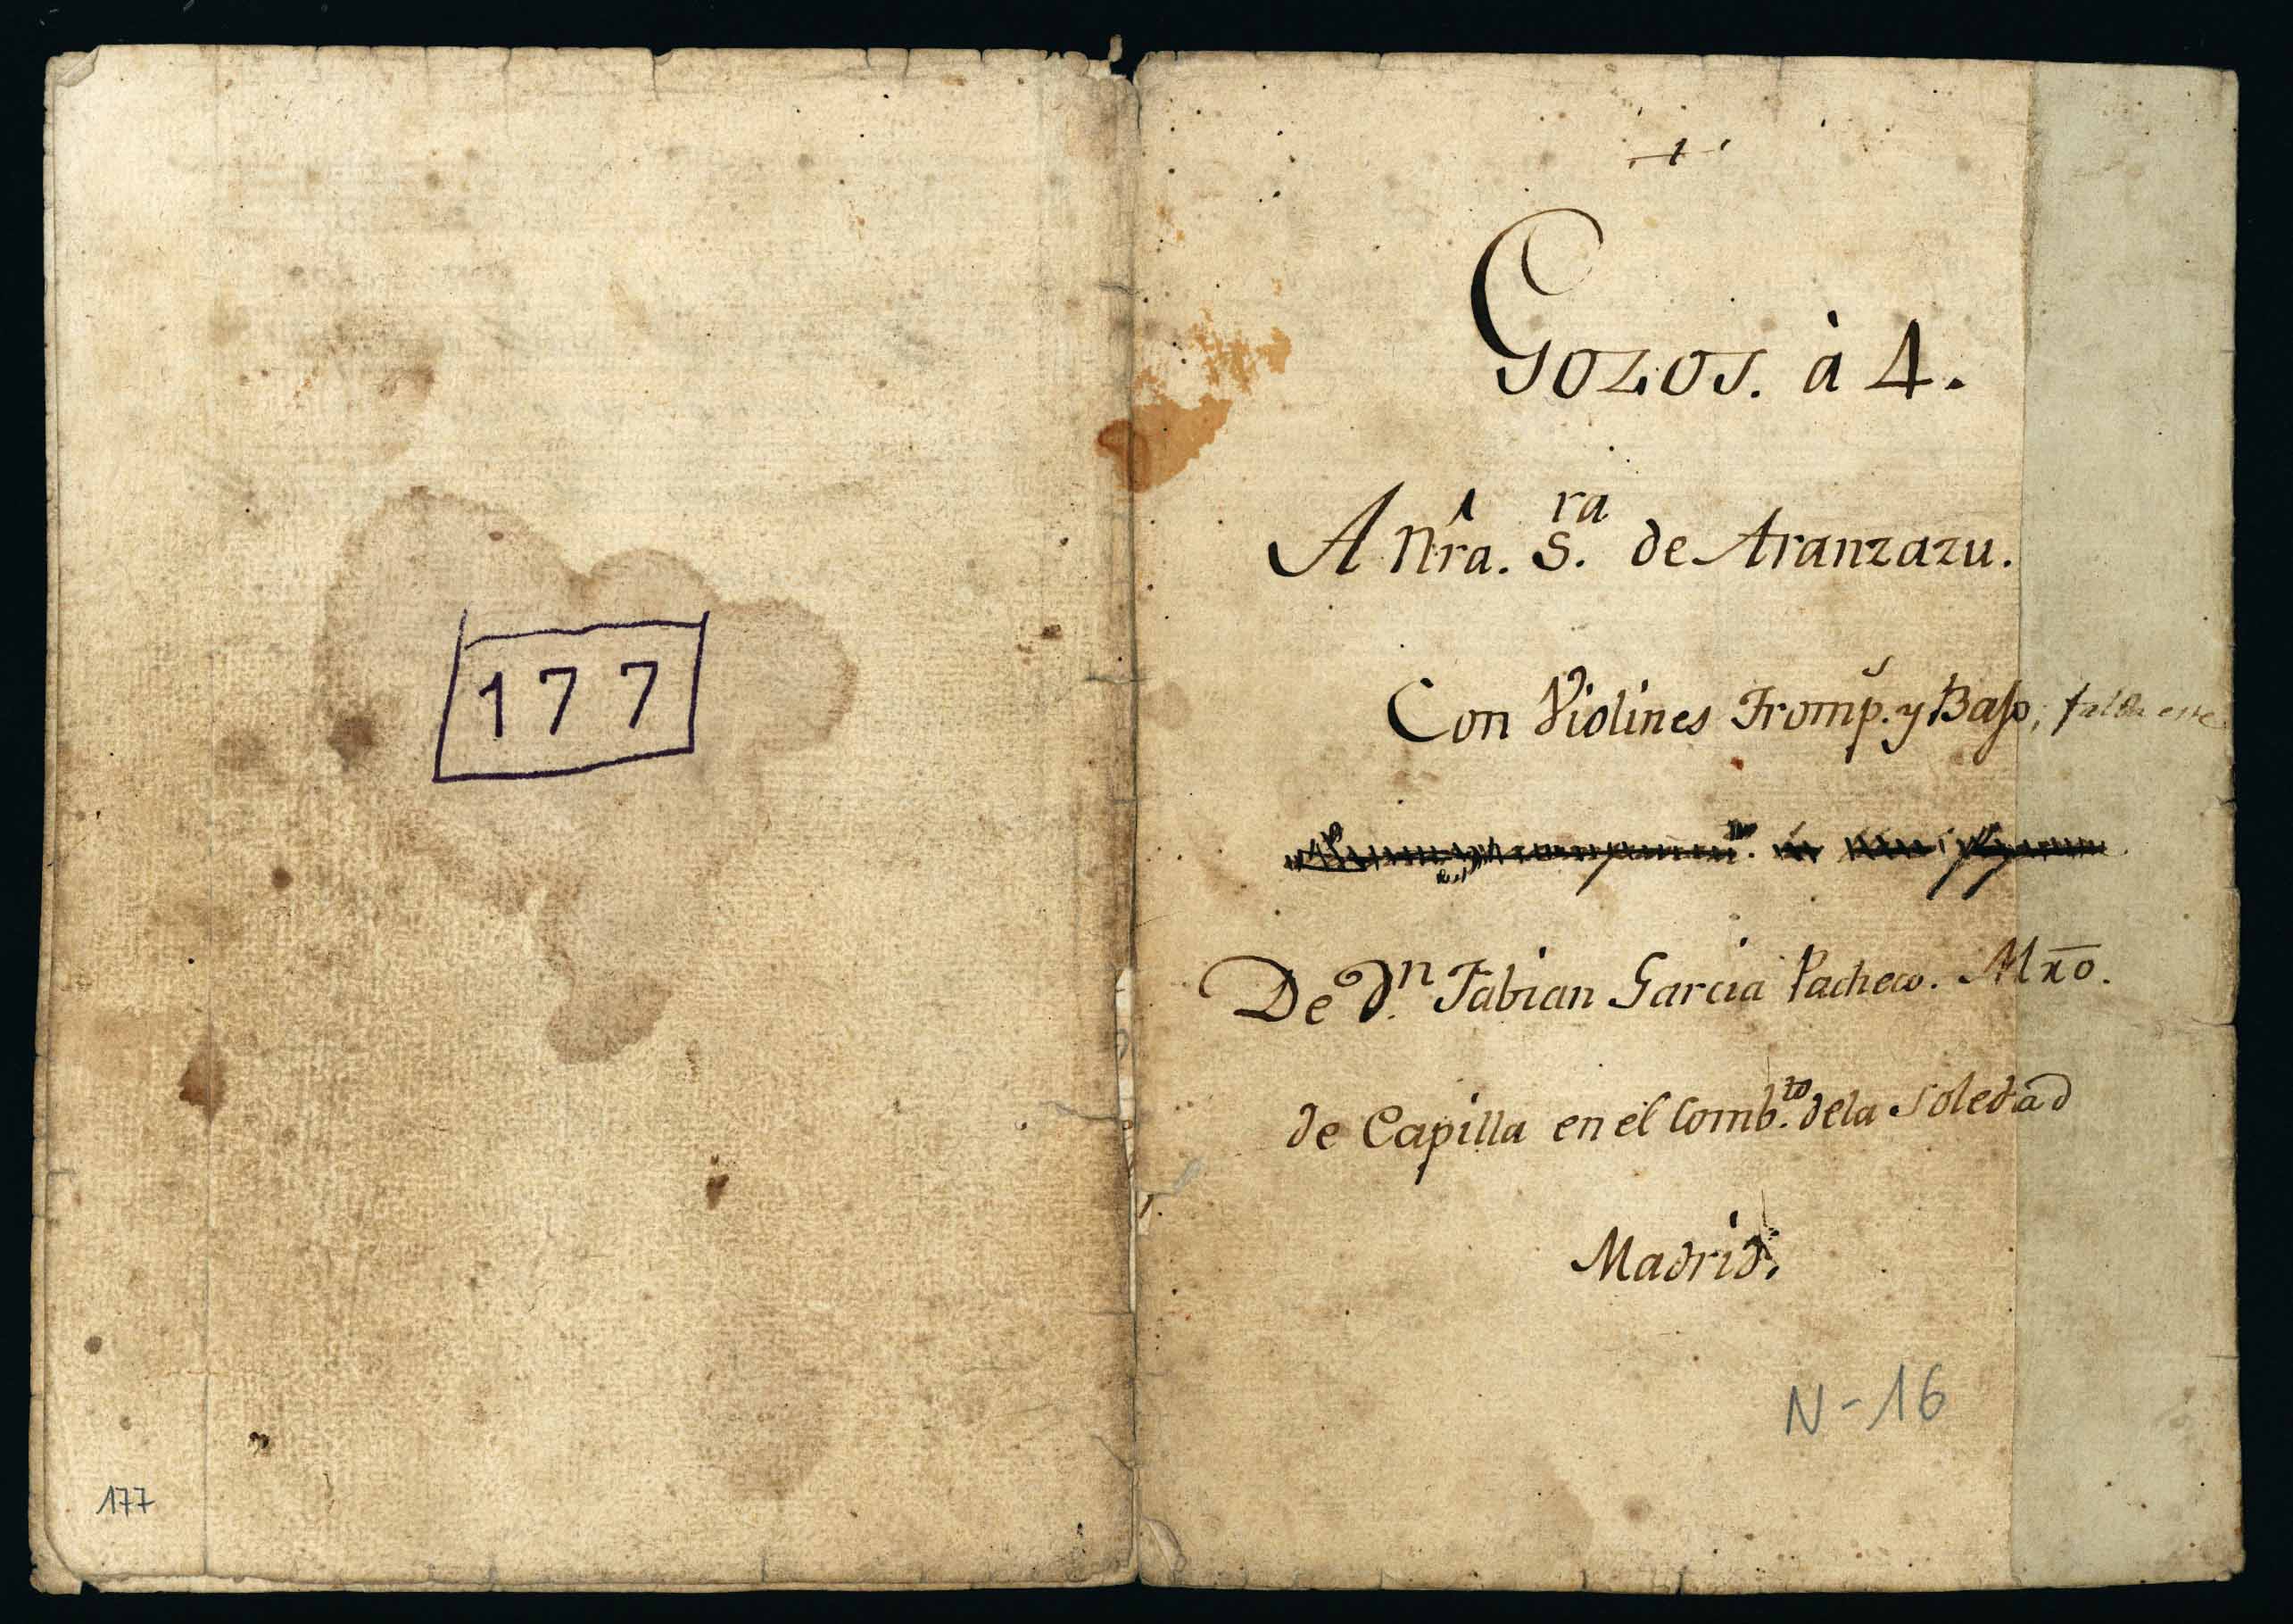 177
177
Gozos. à 4.
A Nrâ. S.ra de Aranzazu.
Con Violines Tromp.s y Baſo; falta este
De Dn. Fabian Garcia Pacheco. Mro.
de Capilla en el Comb.to dela Soledad
Madrid.
N-16